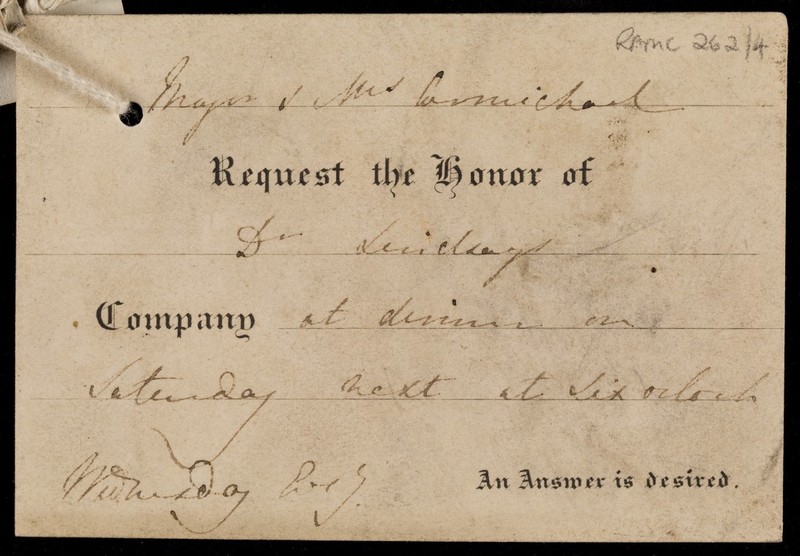 RAMC 262/4
Major & Mrs Carmichael
Request the Honor of
Dr Lindsays
Company at dinner on
Saturday next at six oclock
Wednesday
An Answer is desired.